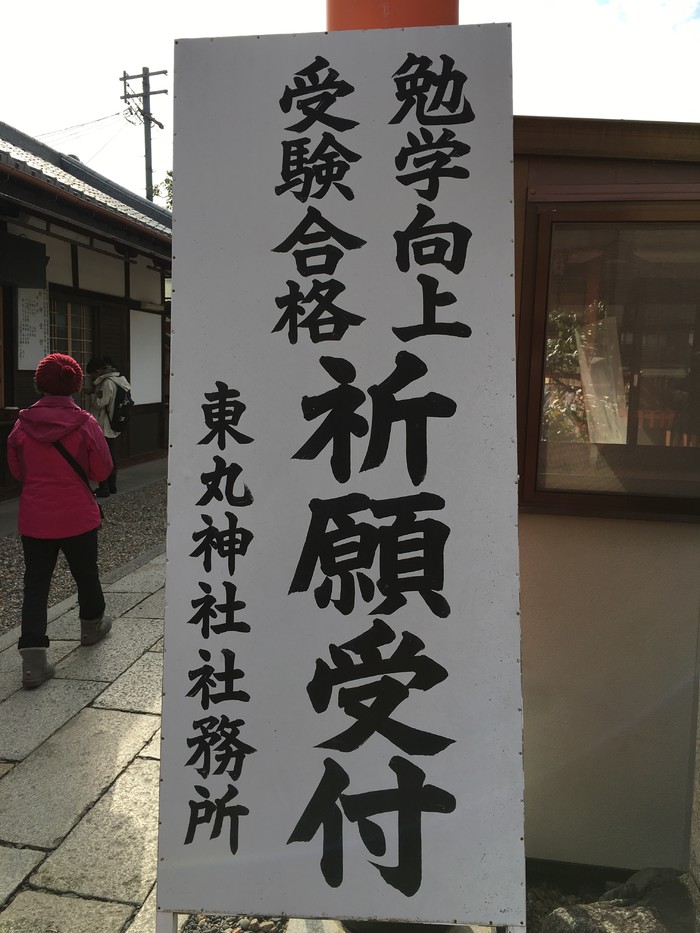 勉学向上
受験合格
祈願受付
東丸神社社務所